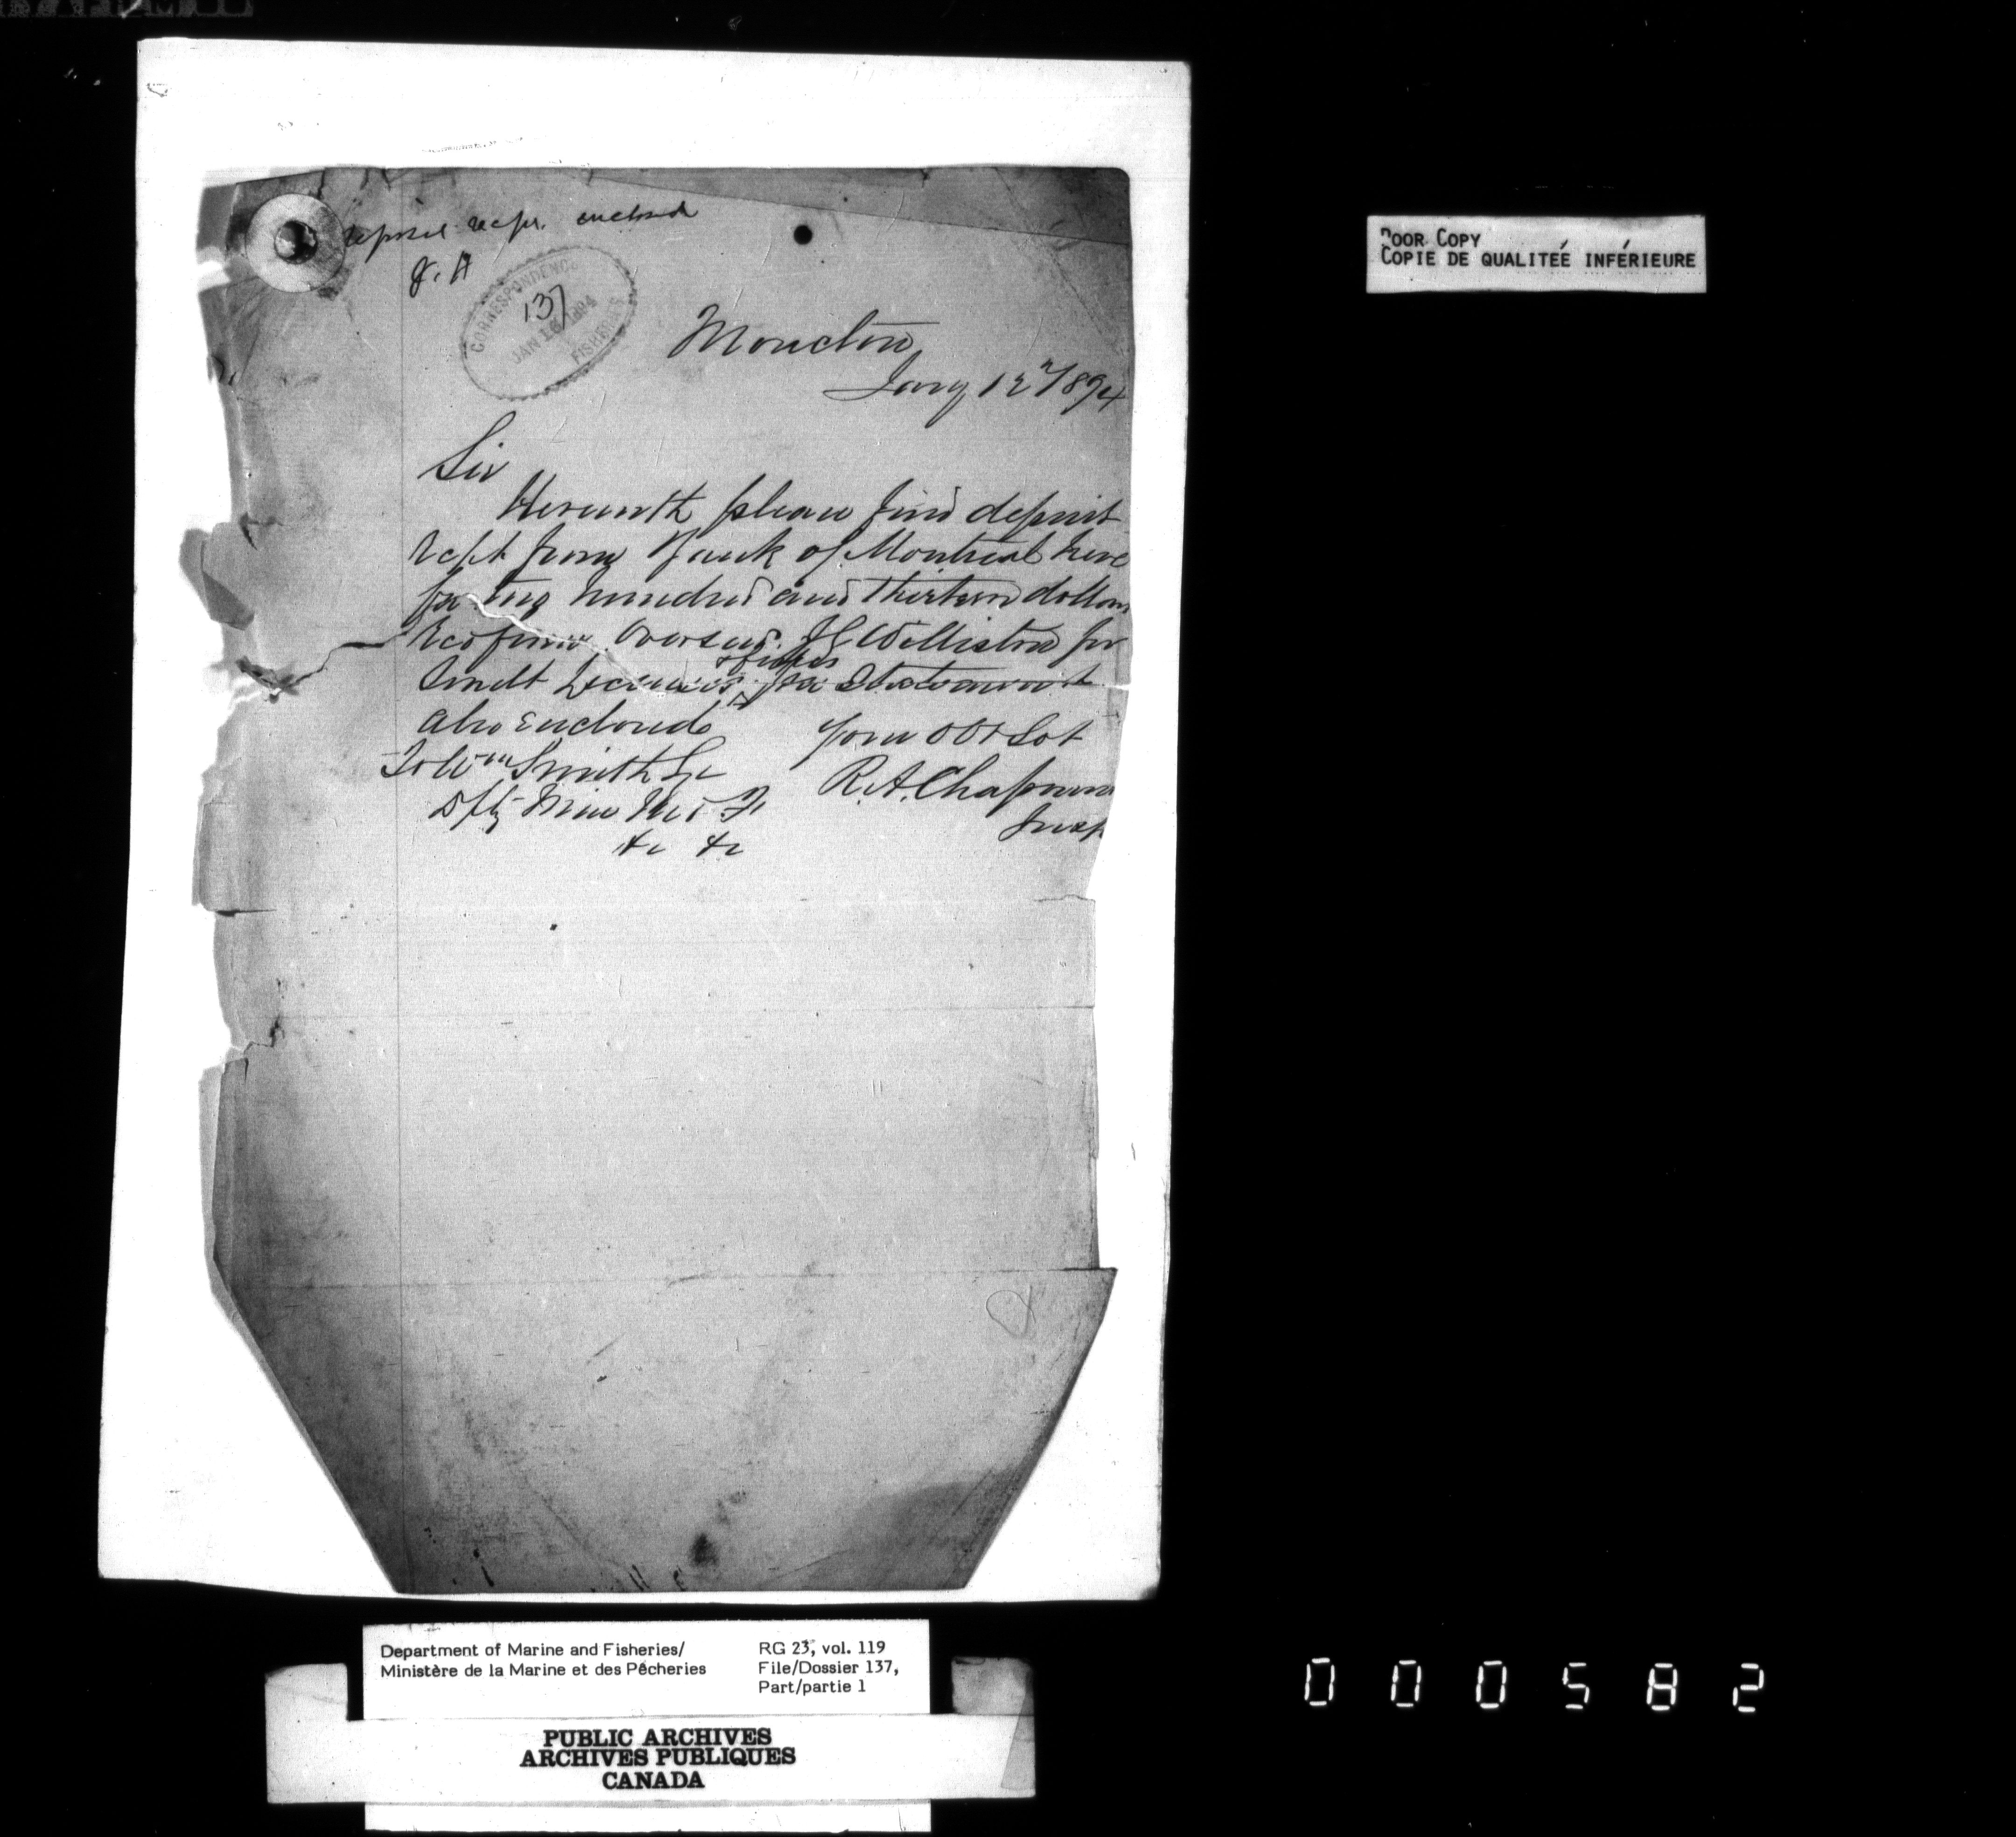 deposit recpt. enclosed
J. H
CORRESPONDENCE
137
JAN 16 1894
FISHERIES
Moncton
Jany 12th/894
Sir
Herewith please find deposit
recpt from Bank of Montreal here
for two hundred and thirteen dollars
Recd from Overseer Williston for
& fines
Smelt Licenses per Statement
also enclosed
Your Obt Sot
To Wm Smith Esq
R.A. Chapman
Dpty Min M & F
Insp
&c &c
POOR COPY
COPIE DE QUALITÉE INFÉRIEURE
Department of Marine and Fisheries/
Ministère de la Marine et des Pêcheries
RG 23, vol. 119
File/Dossier 137,
Part/partie 1
PUBLIC ARCHIVES
ARCHIVES PUBLIQUES
CANADA
000582